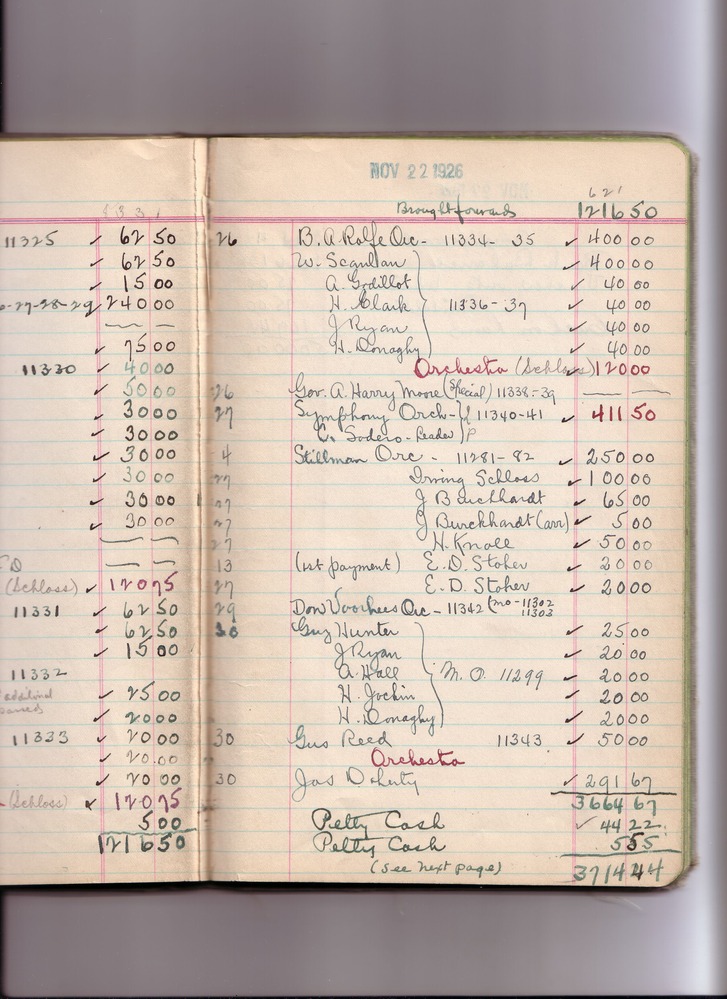 8331
11325 ✓ 62 50
✓ 62 50
✓ 15 00
-27-28-29 ✓ 240 00
✓ 75 00
11330 ✓ 40 00
✓ 50 00
✓ 30 00
✓ 30 00
✓ 30 00
✓ 30 00
✓ 30 00
✓ 30 00
(Schloss) ✓ 120 75
11331 ✓ 62 50
✓ 62 50
✓ 15 00
11332
additional
✓ 25 00
✓ 20 00
11333 ✓ 20 00
✓ 20 00
✓ 20 00
(Schloss) ✓ 120 75
5 00
1216 50
NOV 22 1926
621
Brought forwards 1216 50
26 B. A. Rolfe Orc- 11334-35 ✓ 400 00
W. Scanlan ✓ 400 00
A. Godillot ✓ 40 00
H. Clark } 11336-37 ✓ 40 00
J Ryan ✓ 40 00
H. Donaghy ✓ 40 00
Orchestra (Schloss) ✓ 120 00
26 Gov. A. Harry Moore (Special) 11338-39
27 Symphony Orch- } 11340-41 ✓ 411 50
C. Sodero-Leader
4 Stillman Orc- 11281-82 ✓ 250 00
27 Irving Schloss ✓ 100 00
27 J Burchhardt ✓ 65 00
27 J Burckhardt (arr) ✓ 5 00
27 H. Knoll ✓ 50 00
13 (1st payment) E. D. Stoher ✓ 20 00
27 E. D. Stoher ✓ 20 00
29 Don Voorhees Orc- 11342 (mo-11302
11303
30 Guy Hunter ✓ 25 00
J Ryan ✓ 20 00
A. Hall } M. O. 11299 ✓ 20 00
H. Jockin ✓ 20 00
H. Donaghy ✓ 20 00
30 Gus Reed 11343 ✓ 50 00
Orchestra
30 Jas Doherty ✓ 291 67
3664 67
Petty Cash ✓ 44 22
Petty Cash 5 55
(See next page) 3714 44